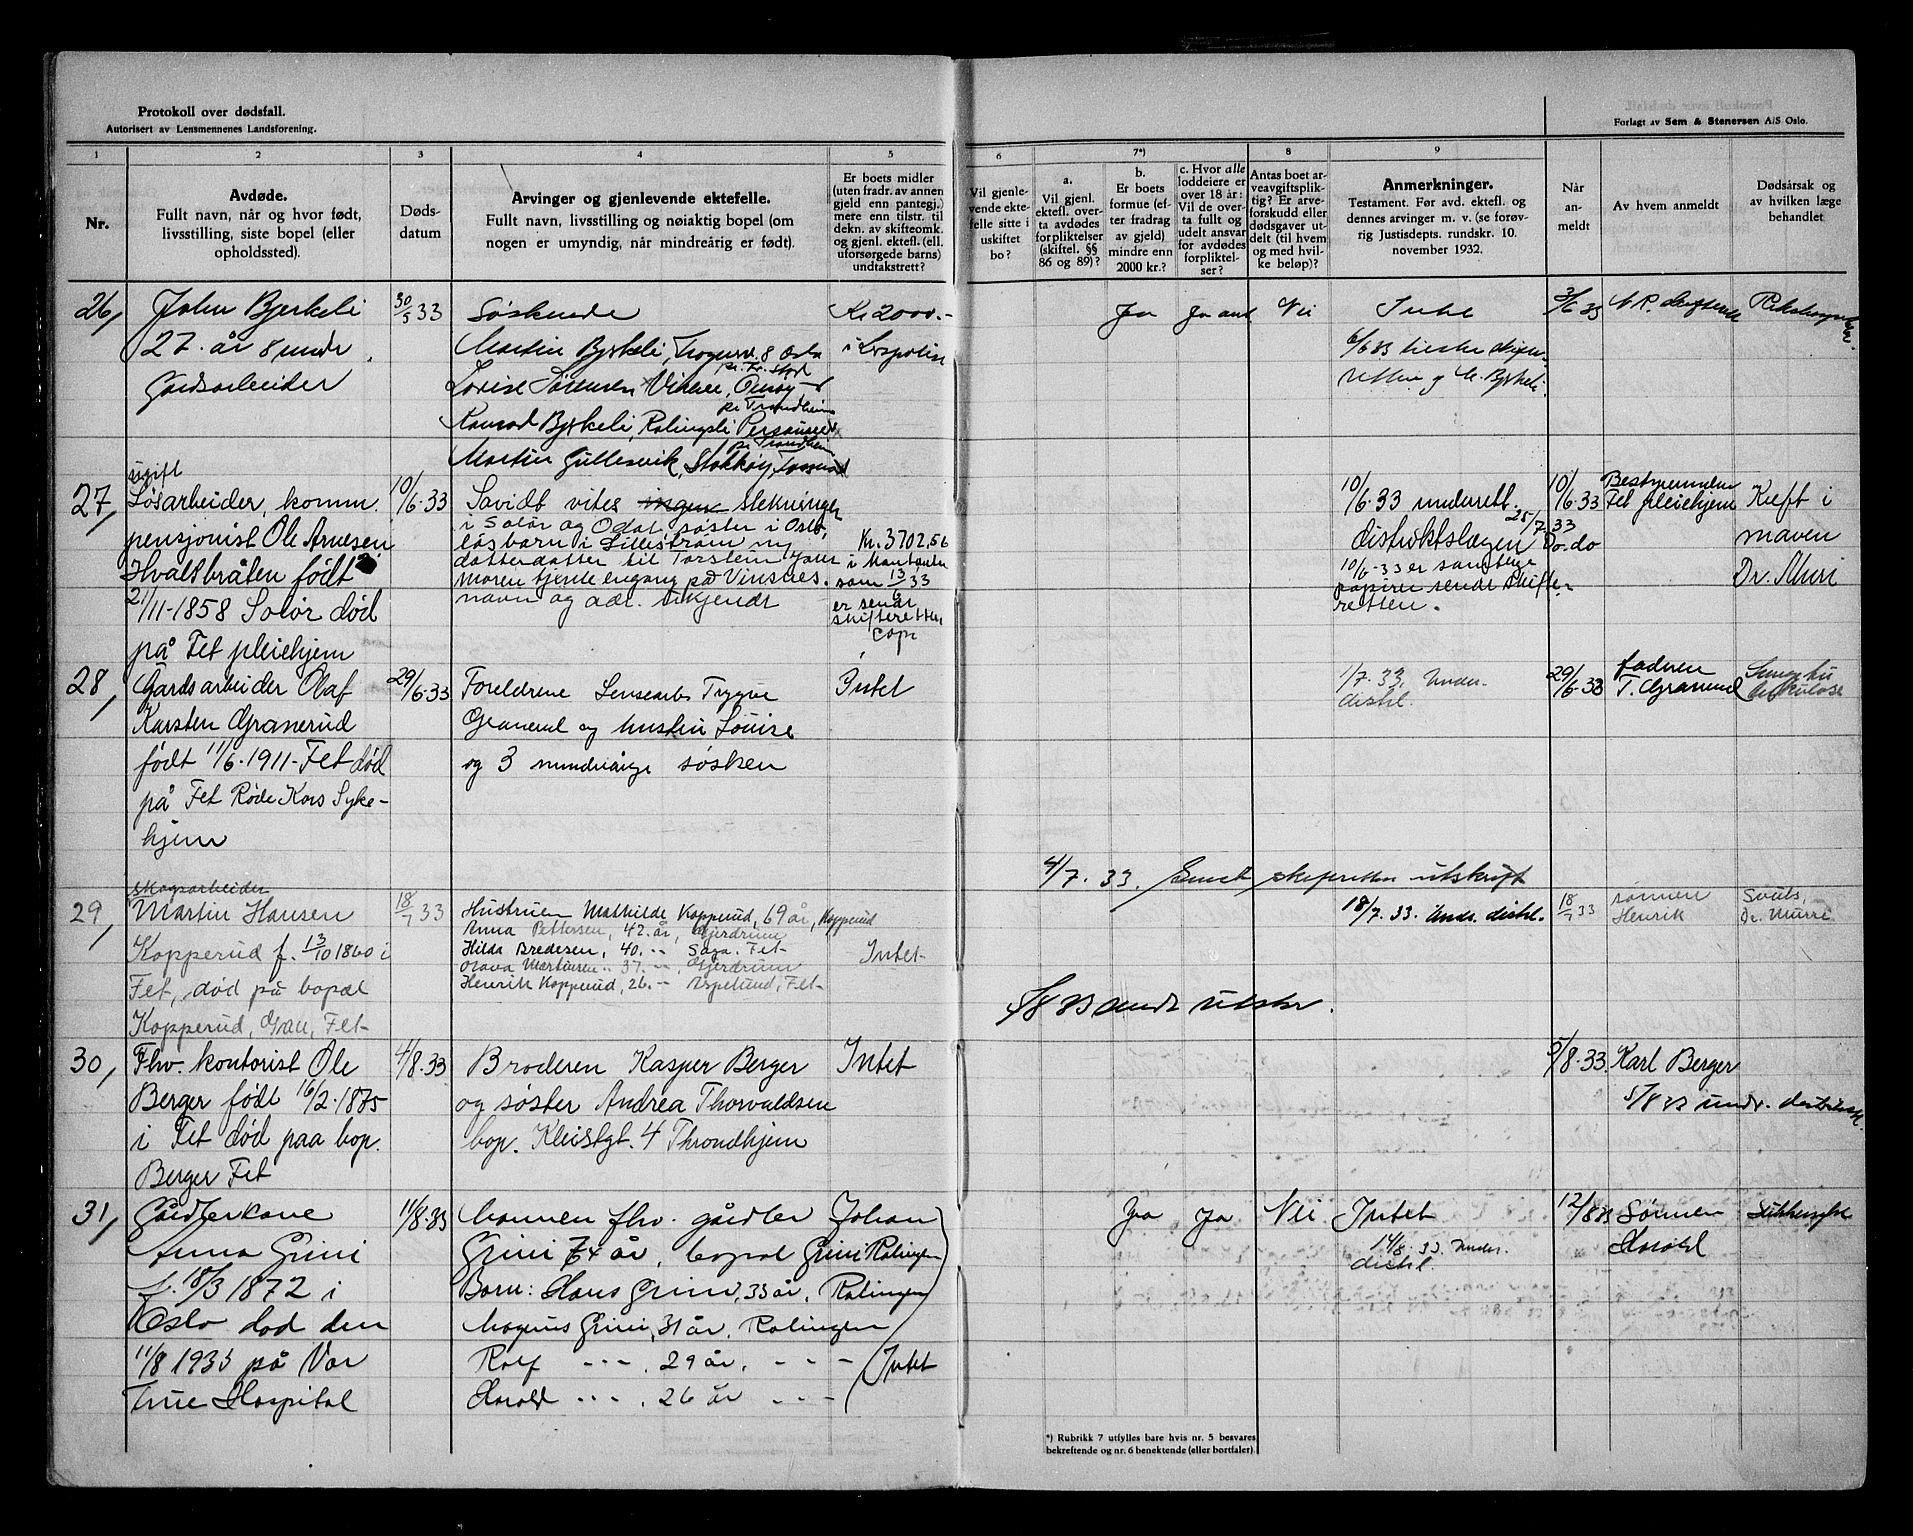 Protokoll over dødsfall.
Autorisert av Lensmennenes Landsforening.
Forlagt av Sem & Stenersen A/S Oslo.
1 2 3 4 5 6 7*) 8 9
Nr.
Avdøde.
Fullt navn, når og hvor født,
livsstilling, siste bopel (eller
opholdssted).
Døds-
datum
Arvinger og gjenlevende ektefelle.
Fullt navn, livsstilling og nøiaktig bopel (om
nogen er umyndig, når mindreårig er født).
Er boets midler
(uten fradr. av annen
gjeld enn pantegj.)
mere enn tilstr. til
dekn. av skifteomk.
og gjenl. ektef. (ell.
uforsørgede barns)
undtakstrett?
Vil gjenle-
vende ekte-
felle sitte i
uskiftet
bo?
a.
Vil gjenl.
ektef. over-
ta avdødes
forpliktelser
(skiftel. §§
86 og 89)?
b.
Er boets
formue (ef-
ter fradrag
av gjeld)
mindre enn
2000 kr.?
c. Hvor alle
loddeiere er
over 18 år:
Vil de over-
ta fullt og
udelt ansvar
for avdødes
forpliktel-
ser?
Antas boet ar-
veavgiftsplik-
tig? Er arve-
forskudd eller
dødsgaver ut-
delt (til hvem
og med hvil-
ke beløp)?
Anmerkninger.
Testament. Før avd. ektef. og
dennes arvinger m. v. (se forøv-
rig Justisdepts. rundskr. 10.
november 1932.
Når
an-
meldt
Av hvem anmeldt
Dødsårsak og
av hvilken læge
behandlet
26, John Bjerkeli 30/5 33 Søskende Kr 2000.- Ja Ja Nei Intet 3/6 33
27. år 8 mndr. Martin Bjerkeli, 8 Oslo
Gårdsarbeider
Konrad Bjerkeli, Rælingsli
pr. Trondheim
Martin Gullesvik, Stokkøy
ugift
27, Løsarbeider, komm. 10/6-33 Savidt vites ingen slektninger 10/6-33 underett. 10/6-33 Bestyrerinden Fet pleiehjem Kreft i
pensjonist Ole Arnesen i Solør og Odal, søster i Oslo, distriktslægen 25/7-33 Do. do maven
løsbarn i Lillestrøm Kr. 3702,56
Hvalsbråten født datterdatter til Torstein 10/6-33 er samtlige Dr. Muri
moren tjente engang på Vinsnes. som 13/6 33 papirer sendt skifte-
21/11-1858 Solør død navn og adr. ukjendt er sendt skifteretten retten.
på Fet pleiehjem
28, Gårdsarbeider Olaf 29/6-33 Foreldrene Lensearb. Trygve Intet 1/7-33 Under. 29/6-33 faderen
Karsten Granerud Granerud og hustru Louise distl. T. Granerud
født 11/6-1911-Fet død og 3 mindreårige søsken
på Fet Røde Kors Syke-
hjem
4/7. 33. Sendt skifteretten utskrift
skogsarbeider
29, Martin Hansen 18/7 33 Hustruen Mathilde Kopperud, 69 år, Kopperud 18/7. 33. Und. distl. 18/7 33 sønnen
Anna Pettersen, 42. år, Gjerdrum Henrik Dr. Murri
Kopperud f. 13/10 1860 i Hilda Bredesen, 40. -- Saga. Fet- Intet-
Olava Martinsen.. 37. --, Gjerdrum
Fet, død på bopæl Henrik Kopperud, 26. -- Fet-
Kopperud, Grav, Fet-
30, Fhv. kontorist Ole 4/8.33 Broderen Kasper Berger Intet 5/8.33. Karl Berger
Berger født 16/2-1875 og søster Andrea Thorvaldsen 5/8 33 undr.
i Fet død paa bop. bop. Kleistgt. 4 Throndhjem
Berger Fet
31, Gårdbrkone 11/8-33 Mannen fhv. gårdbr Johan Ja Ja Nei Intet 12/8 33 Sønnen Sukkersyke
Anna Grini Grini 74 år, bopæl Grini Rælingen 14/8-33. Under. Harald
distl.
f. 18/3 1872 i Barn: Hans Grini, 33 år, Rælingen
Oslo død den Magnus Grini, 31 år, Rælingen
11/8 1933 på Vor Rolf - - - , 29 år, - - - Intet
Frue Hospital Harald - - - , 26 år - - -
*) Rubrikk 7 utfylles bare hvis nr. 5 besvares
bekreftende og nr. 6 benektende (eller bortfaler).